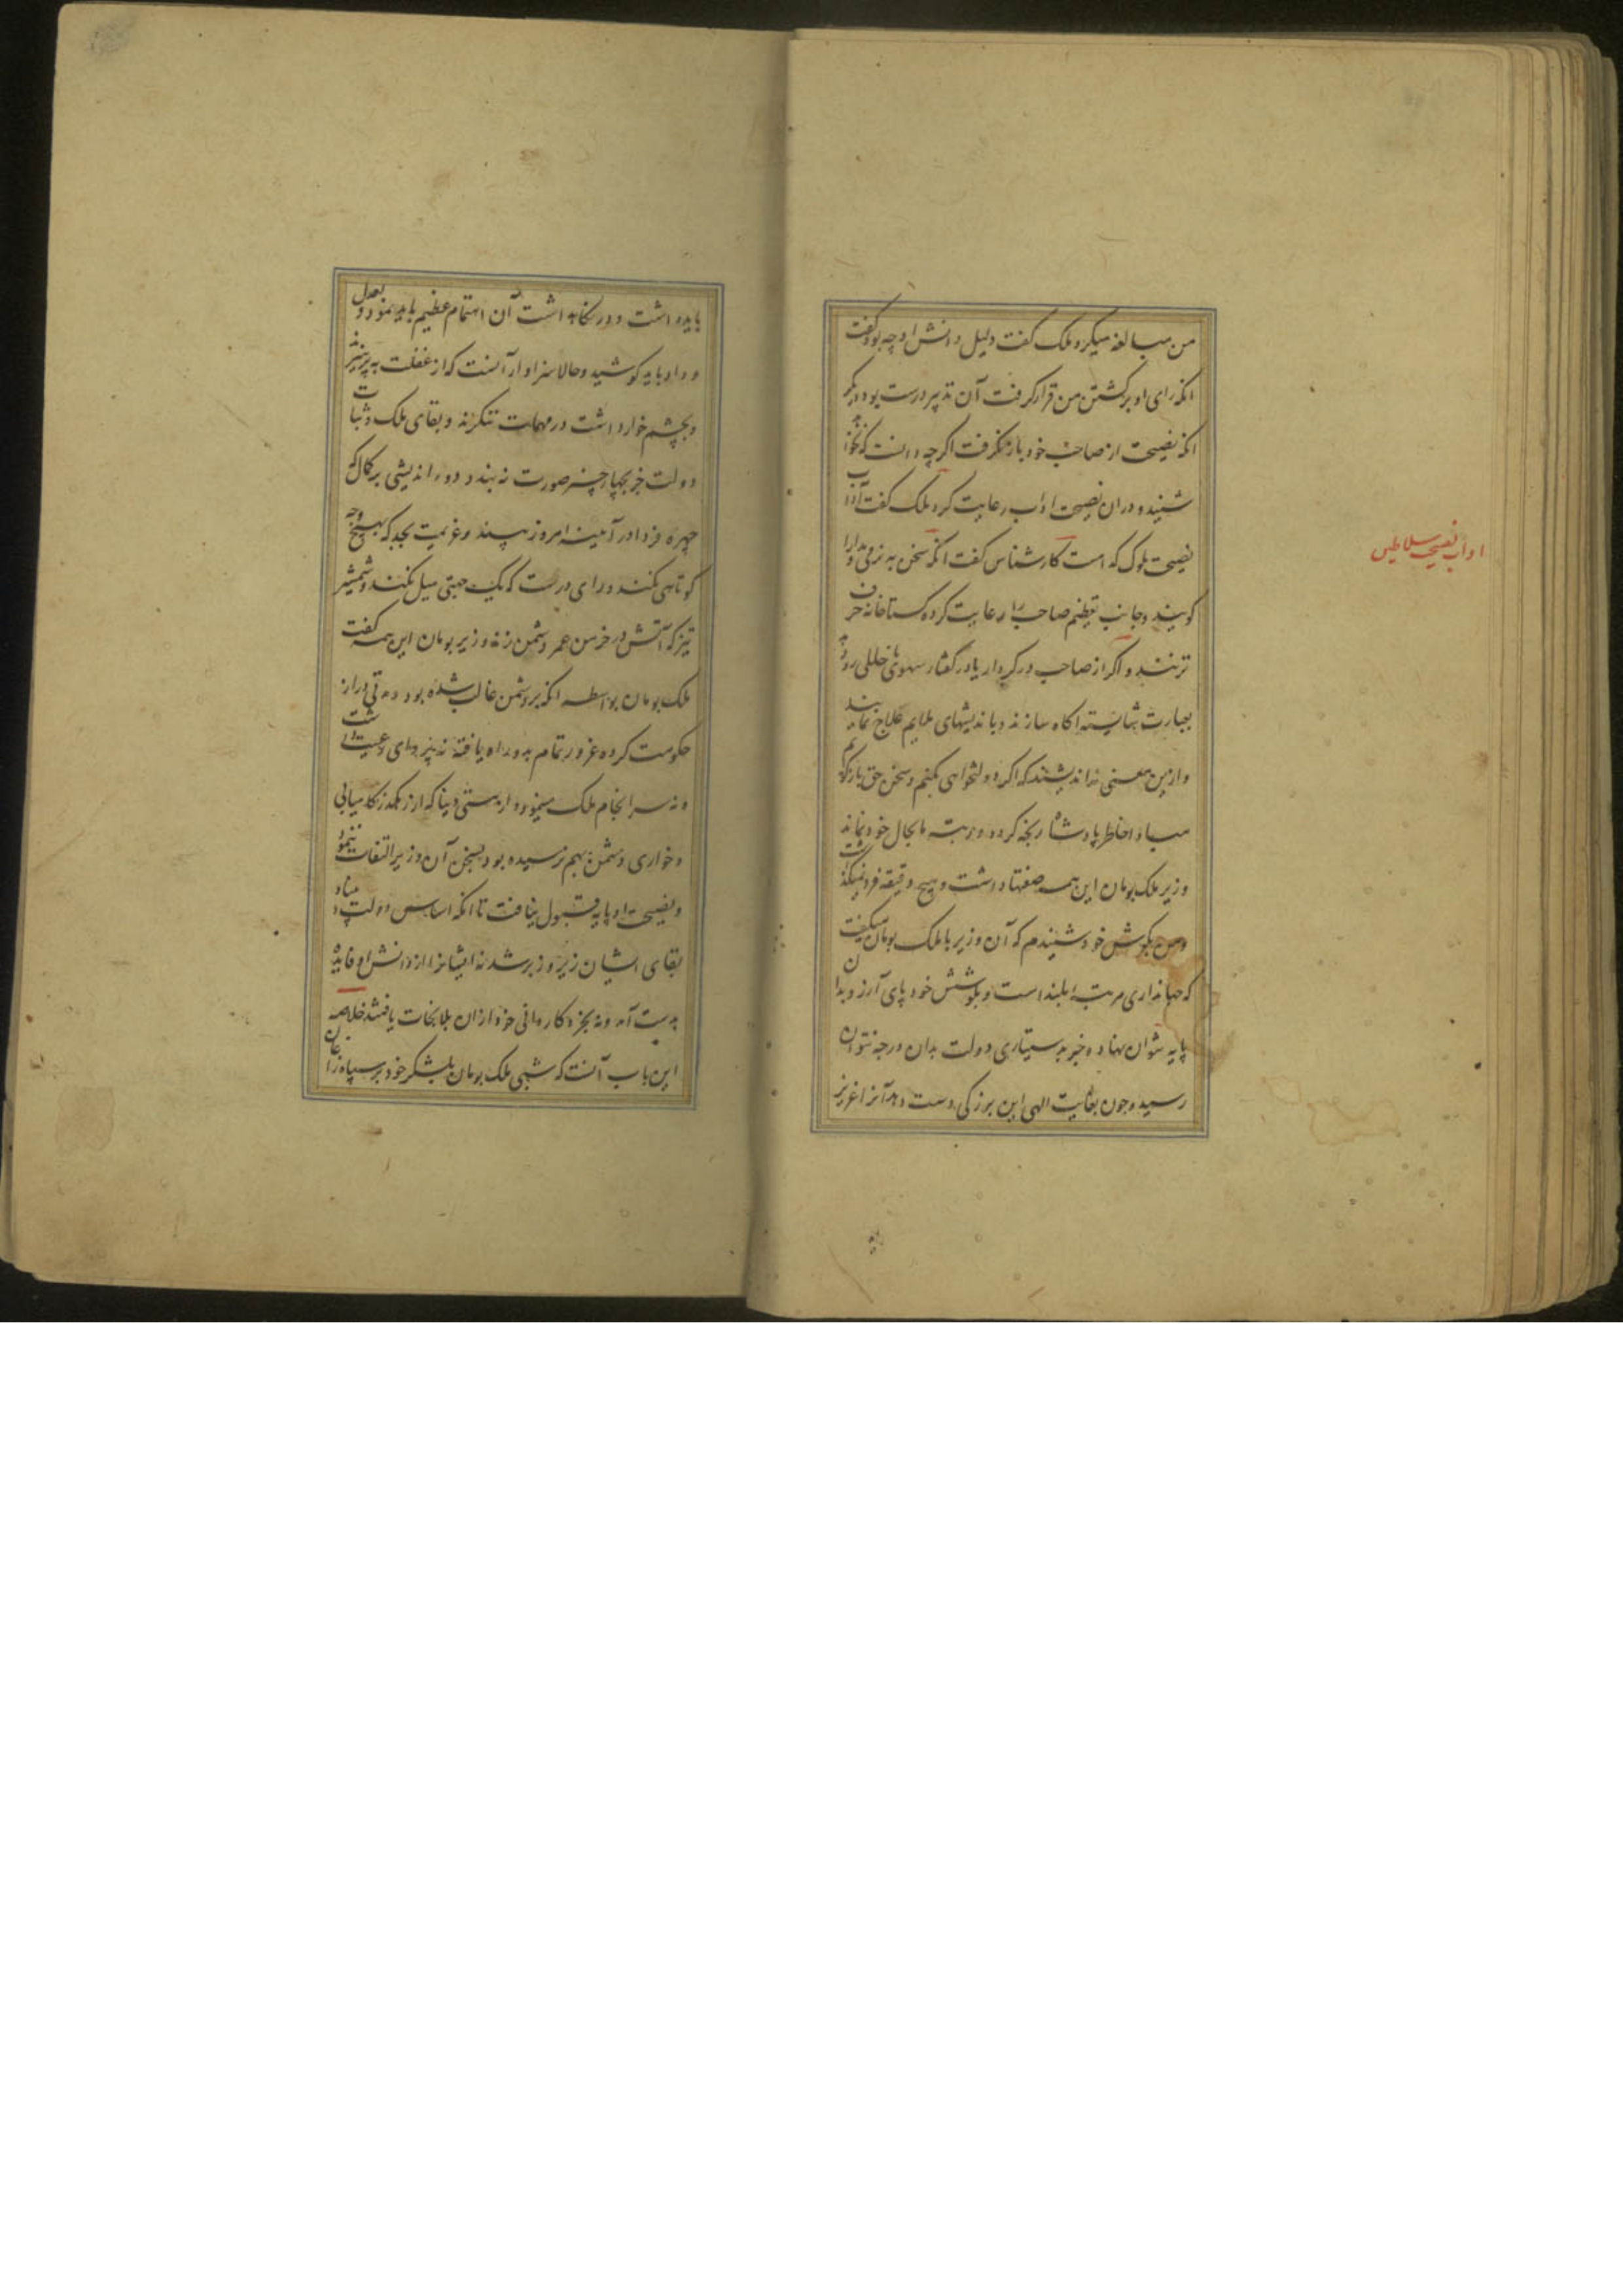 من مبالغه میکرد ملک گفت دلیل دانش او چه بود گفت
انکه رای او بر کشتن من قرار گرفت آن تدبیر درست بود دیگر
انکه نصیحت از صاحب خود باز نگرفت اگرچه دانست که نخواهد
شنید و دران نصیحت اداب رعایت کرد ملک گفت آداب
نصیحت ملوک کدامست کارشناس گفت انکه سخن به نرمی و مدارا
گویند و جانب تعظیم صاحب را رعایت کرده گستاخانه حرف
نزنند و اگر از صاحب در کردار یا در گفتار سهوی یا خللی رود
بعبارت شایسته اکاه سازند و باندیشهای ملایم علاج نمایند
و ازین معنی نه اندیشند که اگر دولتخواهی بکنیم و سخن حق باز گوئیم
مبادا خاطر پادشاه رنجه گردد و رتبه ما بحال خود نماند
وزیر ملک بومان این همه صفتها داشت و هیچ دقیقه فرو نمیگذاشت
و من بگوش خود شنیدم که آن وزیر با ملک بومان میگفت
که جهانداری مرتبه بلند است و بکوشش خود پای آرزو بدان
پایه نتوان نهاد و جز به دستیاری دولت بدان درجه نتوان
رسید و چون بعنایت الهی این بزرگی دست دهد آنرا عزیز
اداب نصیحت سلاطین
باید داشت و در نگاهداشت آن اهتمام عظیم باید نمود و بعدل
و داد باید کوشید و حالا سزاوار آنست که از غفلت به پرهیزند
و بچشم خوارداشت در مهمات ننگرند و بقای ملک و ثبات
دولت جز بچهار چیز صورت نه بندد دور اندیشی بر کمال که
چهره فردا در آئینه امروز بیند و عزیمت بجد که بهیچ وجه
کوتاهی نکند و رای درست که بیک جهتی میل نکند و شمشیر
تیز که آتش در خرمن عمر دشمن زند وزیر بومان این همه گفت
ملک بومان بواسطه انکه بر دشمن غالب شده بود و مدتی دراز
حکومت کرده غرور تمام بدو راه یافته نه پروای رعیت داشت
و نه سرانجام ملک مینمود از مستی دنیا که از رهگذر کامیابی
و خواری دشمن بهم رسیده بود بسخن آن وزیر التفات ننمود
و نصیحت او پایه قبول نیافت تا انکه اساس دولت و بنیاد
بقای ایشان زیر و زبر شد نه ایشانرا از دانش او فایده
بدست آمد و نه بخرد و کاردانی خود ازان بلا نجات یافتند خلاصه
این باب آنست که شبی ملک بومان بلشکر خود بر سپاه زاغان